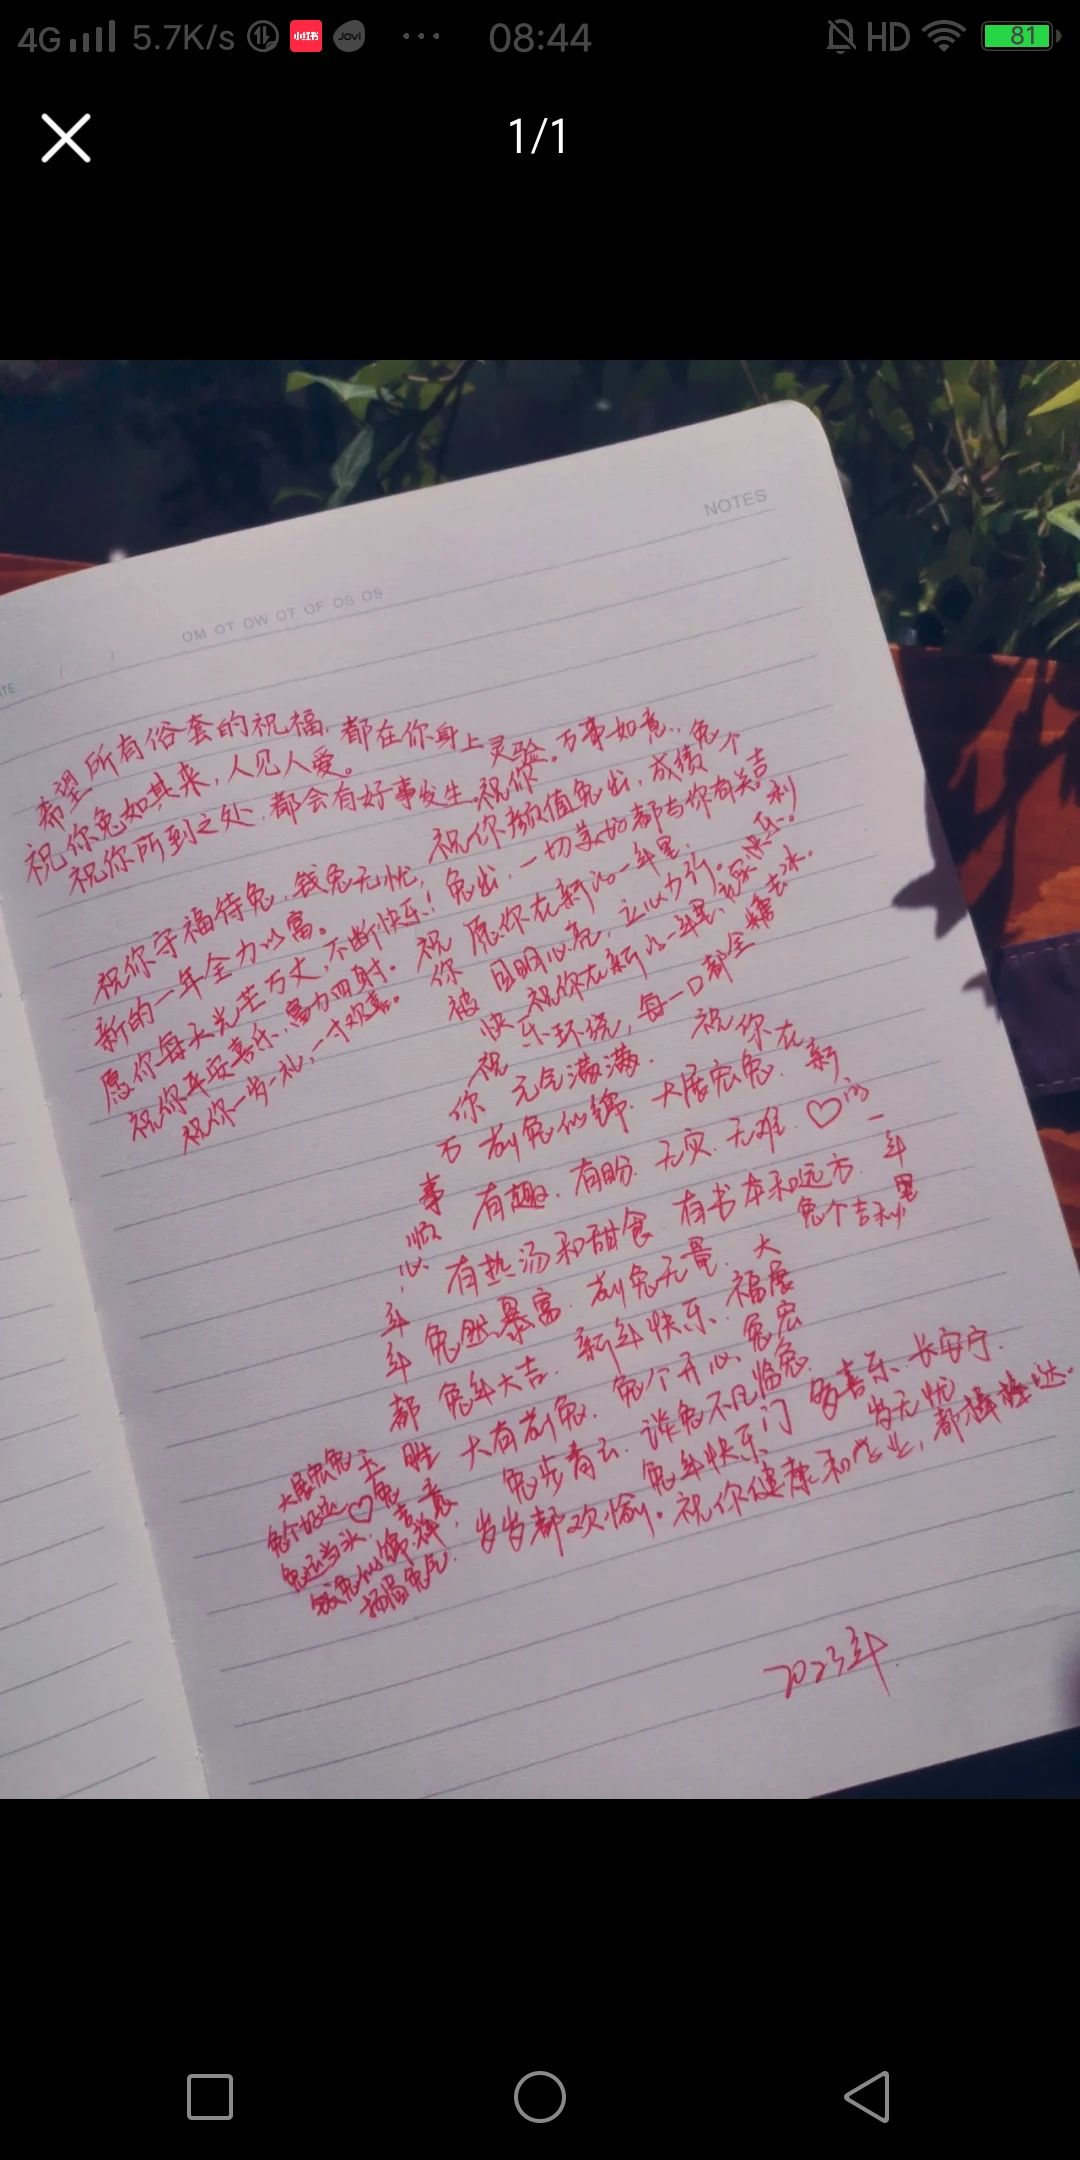 4G 5.7K/s 小红书 Jovi ... 08:44 HD 81
1/1
NOTES
OM OT OW OT OF OS OS
希望所有俗套的祝福,都在你身上灵验。万事如意,
祝你兔如其来,人见人爱。
祝你所到之处,都会有好事发生。祝你
祝你颜值兔出,成绩兔个
祝你守福待兔,钱兔无忧,兔出,一切美好都与你有关吉
新的一年全力以富。
愿你在新的一年里,利
愿你每天光芒万丈,不断快乐!祝
目明心亮,立心力行。
祝你平安喜乐,富力四射。你
祝你在新的一年里,快乐。
祝你一岁一礼,一寸欢喜。被
快乐环绕,每一口都全糖去冰。
祝 元气满满. 祝你在
你 前兔似锦. 大展宏兔. 新
万 有趣. 有盼. 无灾. 无难. ♡的
事 有热汤和甜食. 有书本和远方. 一
顺 兔然暴富. 前兔无量. 大 兔个吉利 年
心 兔年大吉. 新年快乐. 福展 里
年 大有前兔. 兔个开心. 兔宏
年 兔步青云. 谈兔不凡 临兔.
都 兔年快乐 门 多喜乐. 长安宁.
大展宏兔 玉 胜 岁无忧
兔个好运♡兔 意
兔运当头. 吉
钱兔似锦. 祥, 岁岁都欢愉。祝你健康和学业,都
扬眉兔气.
2023年.